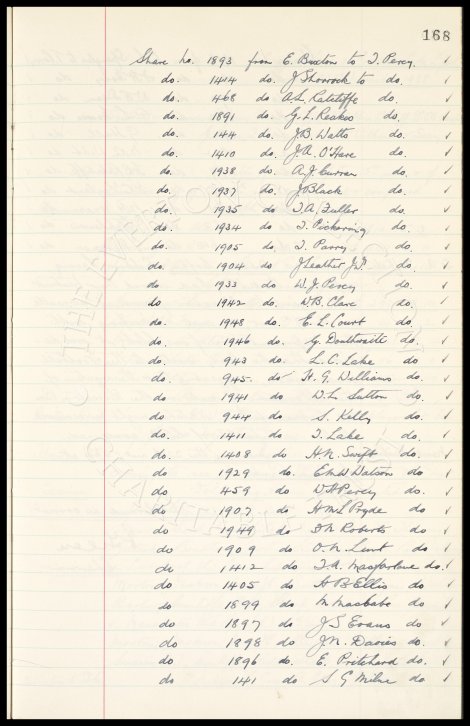 168
Share no. 1893 from E. Buxton to T. Percy. ✓
do. 1414 do. J Shorrock to do. ✓
do. 468 do A.L. Ratcliffe do. ✓
do. 1891 do G. L. Reakes do. ✓
do. 144 do. J.B. Watts do. ✓
do. 1410 do. J.A. O'Hare do. ✓
do. 1938 do. A.J. Curran do. ✓
do. 1937 do. J Black do. ✓
do. 1935 do T.A. Fuller do. ✓
do. 1934 do T. Pickering do. ✓
do. 1905 do T. Parry do. ✓
do. 1904 do J Leather J.P. do. ✓
do 1933 do W.J. Percy do. ✓
do 1942 do. W.B. Clare do. ✓
do. 1948 do. E. L. Court do. ✓
do. 1946 do. G. Douthwaite do. ✓
do. 943 do. L. C. Lake do. ✓
do. 945. do H. G. Williams do. ✓
do. 1941 do W. L. Sutton do. ✓
do. 944 do S. Kelly do. ✓
do. 1411 do T. Lake do. ✓
do. 1408 do H. N. Swift do. ✓
do 1929 do. E W W Watson do ✓
do 459 do W H Percy do. ✓
do. 1907 do. H M L Pryde do ✓
do 1949 do. D M Roberts do ✓
do 1909 do O. M. Lunt do ✓
do 1412 do T. A. Macfarlane do. ✓
do 1405 do H B Ellis do. ✓
do 1899 do M do ✓
do 1897 do J S Evans do ✓
do 1898 do J M. Davies do. ✓
do 1896 do. E. Pritchard do. ✓
do 141 do S G Milne do ✓
THE EVERTON